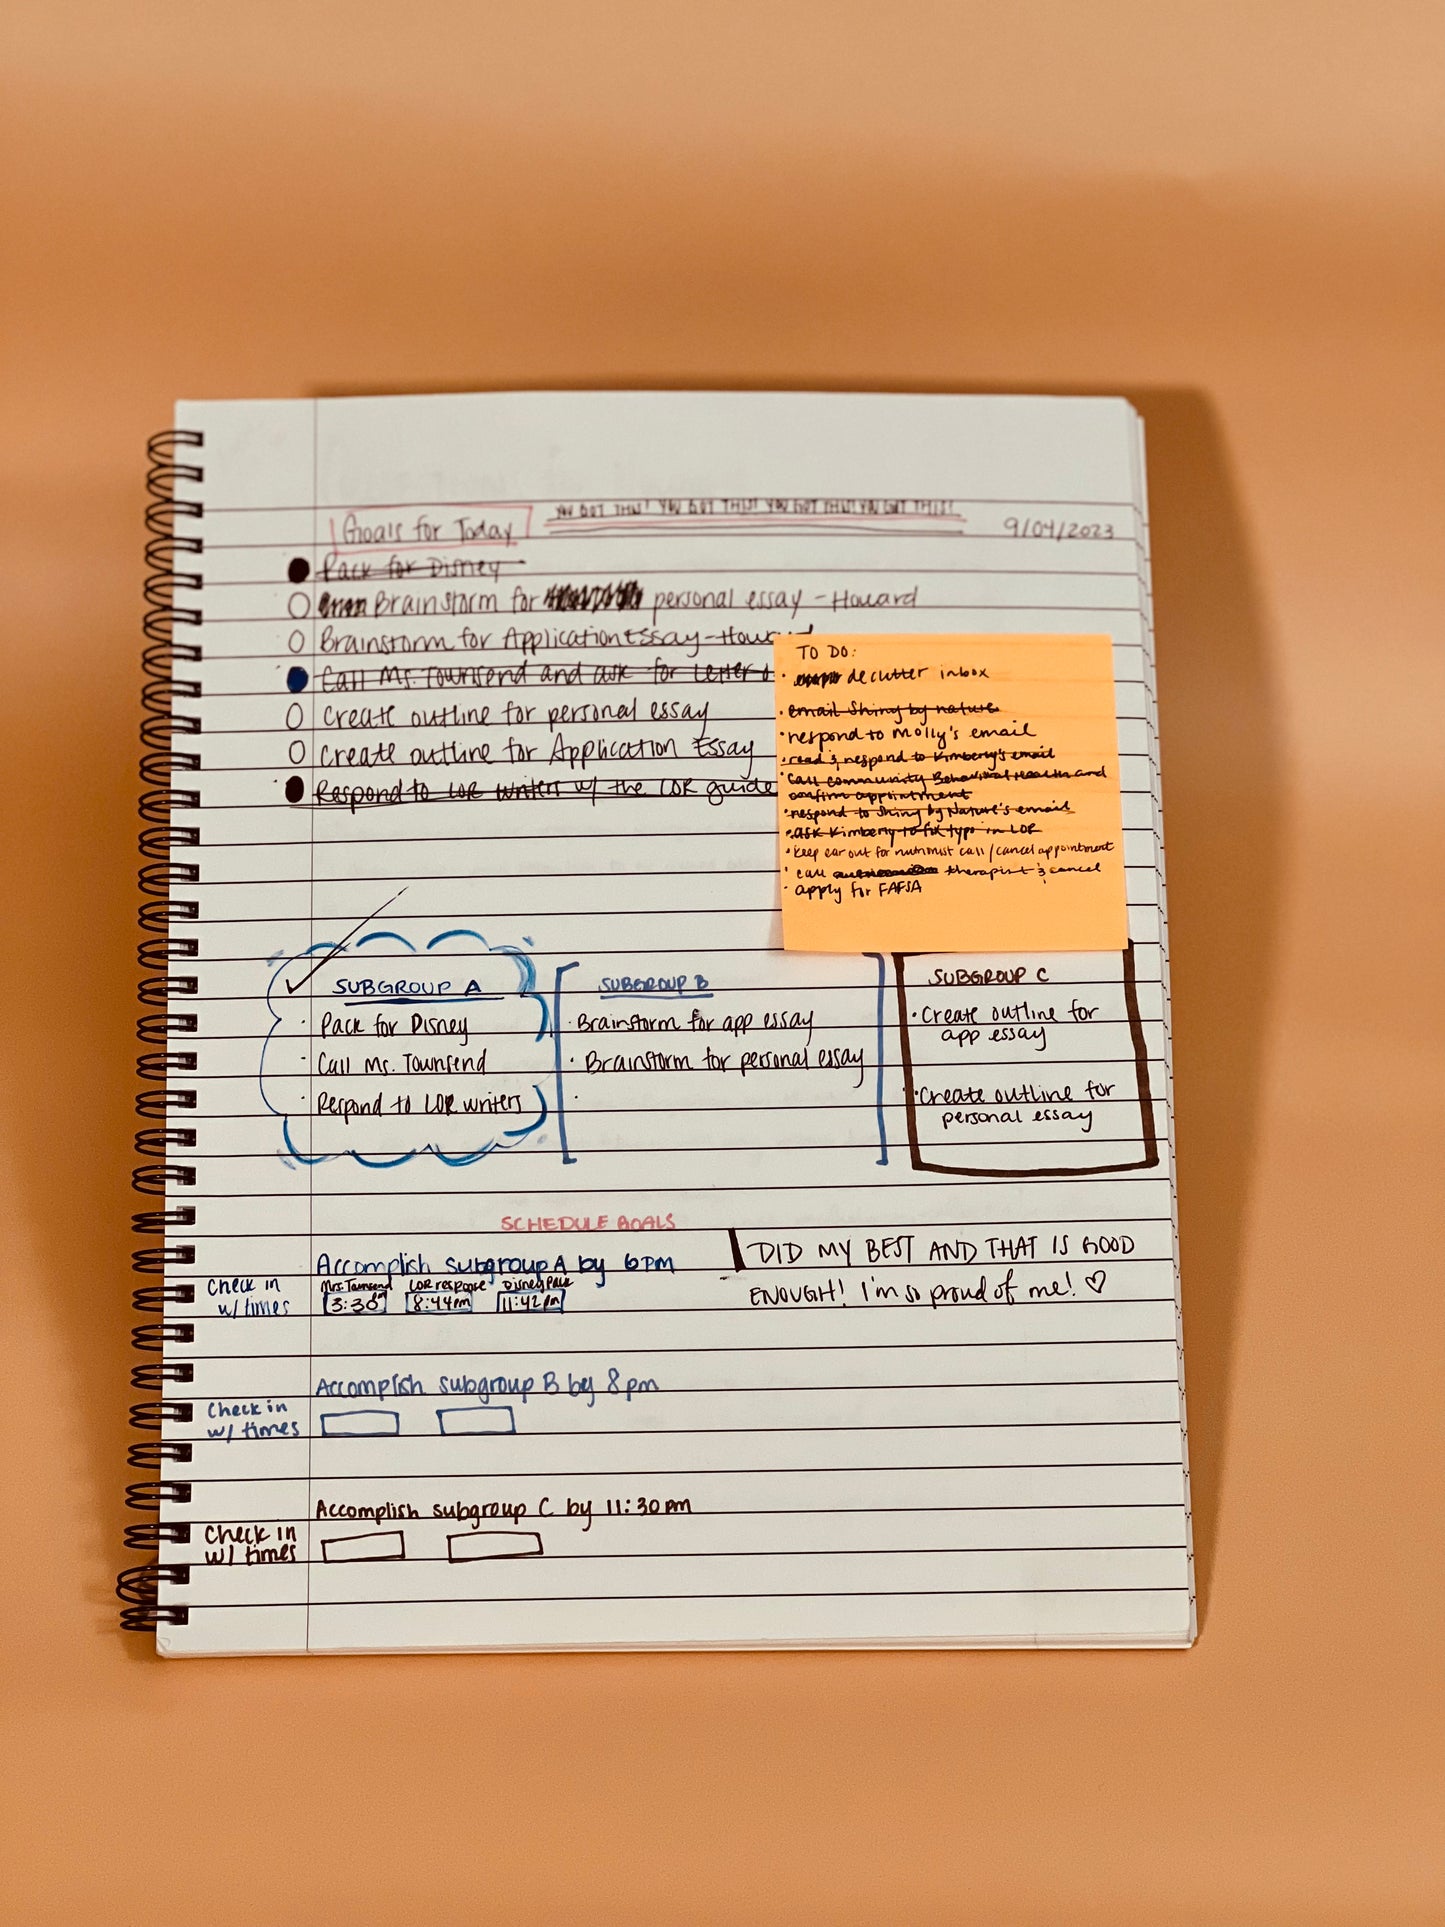 Goals for Today
YOU GOT THIS! YOU GOT THIS! YOU GOT THIS! YOU GOT THIS!
9/04/2023
Pack for Disney
Brainstorm for personal essay - Howard
Brainstorm for Application Essay - Howard
Call Ms. Townsend and ask for Letter
Create outline for personal essay
Create outline for Application Essay
Respond to LOR writers w/ the LOR guide
TO DO:
· declutter inbox
· email Shing by nature
· respond to Molly's email
· read & respond to Kimberly's email
· call community Behavioral Health and
confirm appointment
· respond to Shing by Nature's email
· ask Kimberly to fix typo in LOR
· keep ear out for nutritionist call / cancel appointment
· call therapist & cancel
· apply for FAFSA
SUBGROUP A
· Pack for Disney
· Call Ms. Townsend
· Respond to LOR writers
SUBGROUP B
· Brainstorm for app essay
· Brainstorm for personal essay
·
SUBGROUP C
· Create outline for
app essay
· Create outline for
personal essay
SCHEDULE GOALS
Accomplish subgroup A by 6pm
Check in
w/ times
Mrs. Townsend LOR response Disney Pack
3:30pm 8:44pm 11:42pm
I DID MY BEST AND THAT IS GOOD
ENOUGH! I'm so proud of me! ♡
Accomplish subgroup B by 8pm
Check in
w/ times
Accomplish subgroup C by 11:30pm
Check in
w/ times